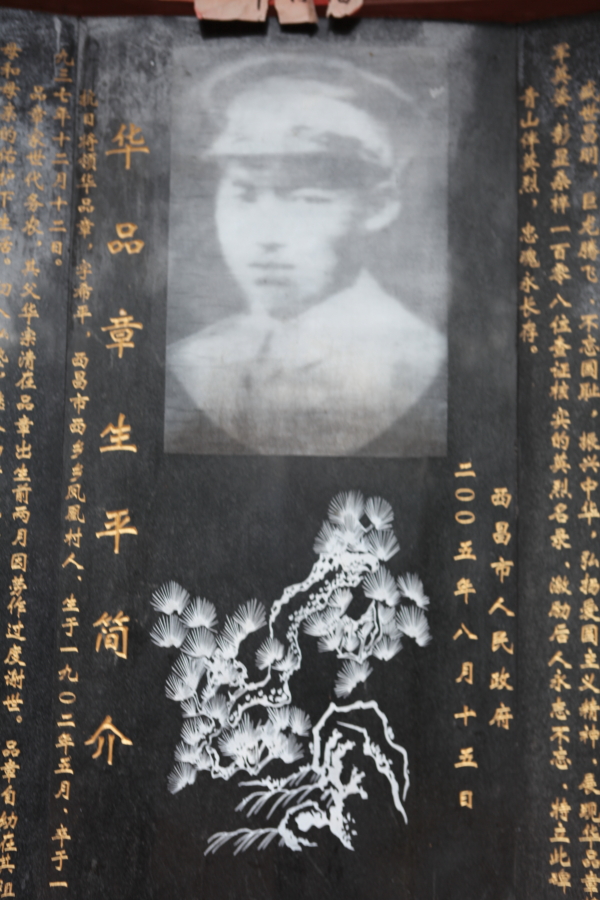 盛世昌明，巨龙腾飞，不忘国耻，振兴中华，弘扬爱国主义精神，展现华品章
军英姿，彰显桑梓一百零八位查证核实的英烈名录，激励后人永志不忘，特立此碑
青山伴英烈，忠魂永长存。
西昌市人民政府
二〇〇五年八月十五日
华品章生平简介
抗日将领华品章，字希平，西昌市西乡乡凤凰村人、生于一九〇二年五月、卒于一
九三七年十二月十二日。
品章家世代务农，其父华荣清在品章出生前两月因劳作过度谢世。品章自幼在其祖
母和母亲的佑护下生活。